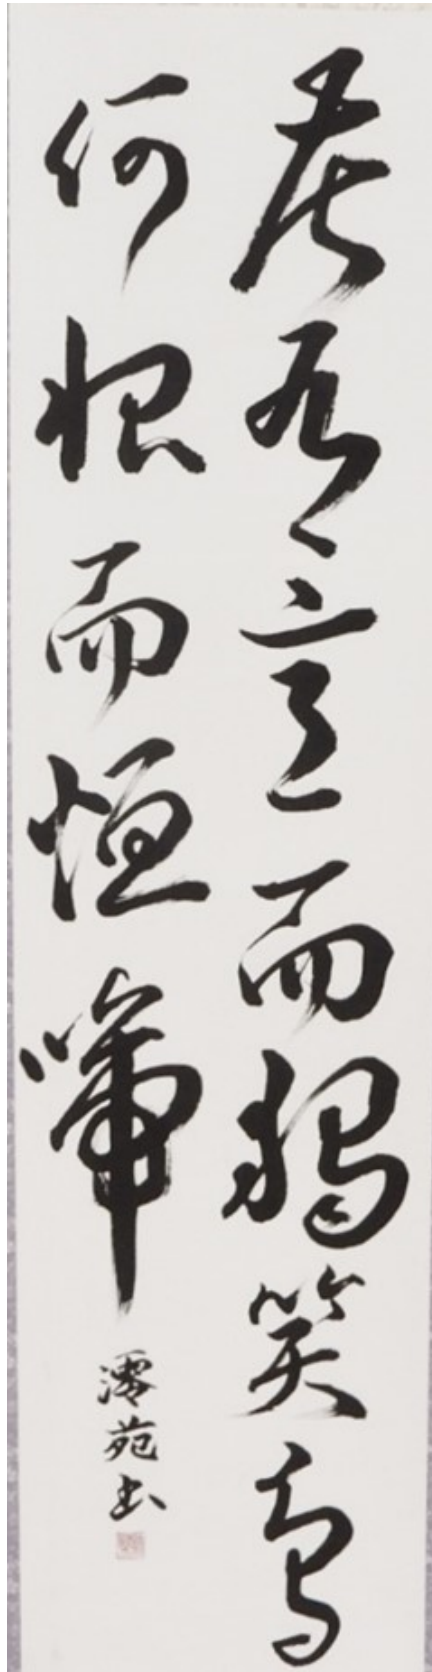 花有意而獨笑鳥
何恨而恒啼
澪苑書